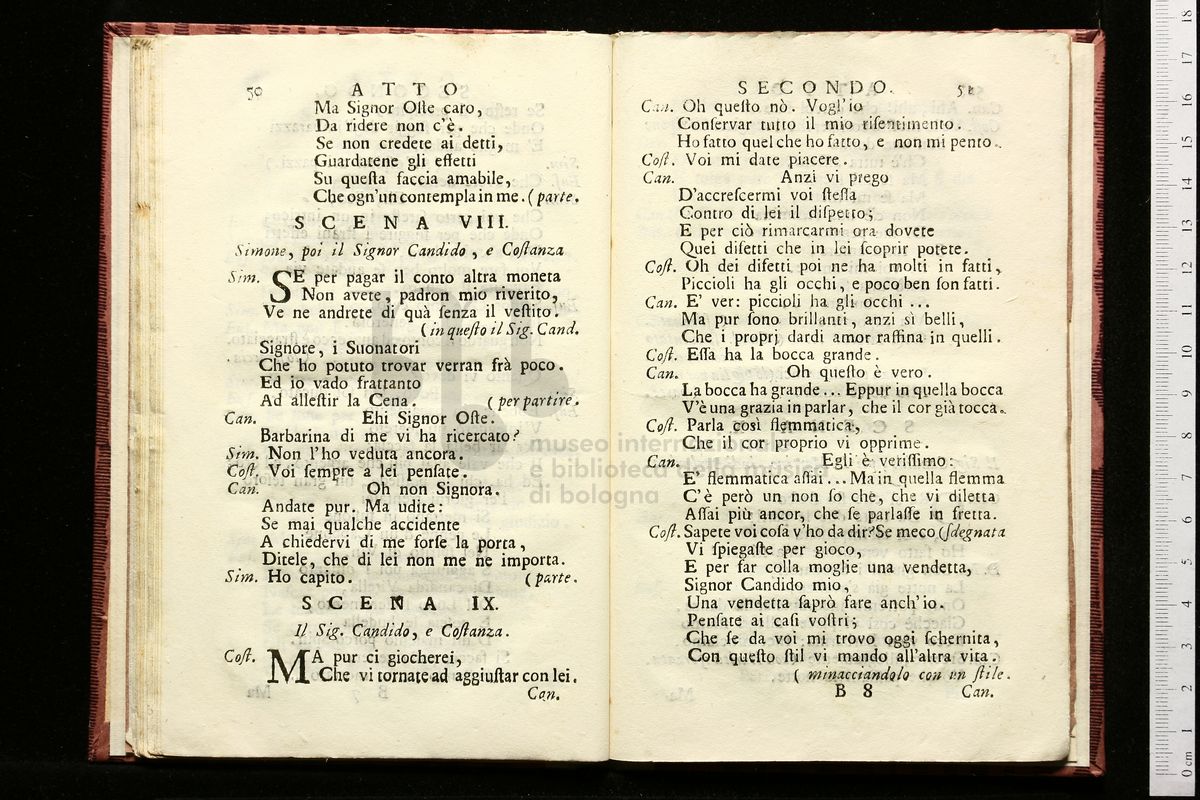 50 ATTO
Ma Signor Oſte caro,
Da ridere non c'è.
Se non credete ai detti,
Guardatene gli effetti
Su queſta faccia amabile,
Che ogn'un contempla in me. (parte.
SCENA VIII.
Simone, poi il Signor Candido, e Coſtanza
Sim. SE per pagar il conto altra moneta
Non avete, padron mio riverito,
Ve ne andrete di quà ſenza il veſtito.
(in queſto il Sig. Cand.
Signore, i Suonatori
Che ho potuto trovar verran frà poco.
Ed io vado frattanto
Ad alleſtir la Cena. (per partire.
Can. Ehi Signor Oſte.
Barbarina di me vi ha ricercato?
Sim. Non l'ho veduta ancora.
Coſt. Voi ſempre a lei penſate.
Can. Oh non Signora.
Andate pur. Ma udite:
Se mai qualche accidente
A chiedervi di me forſe la porta,
Ditele, che di lei non me ne importa.
Sim. Ho capito. (parte.
SCENA IX.
Il Sig. Candido, e Coſtanza.
Coſt. MA pur ci giocherei,
Che vi tornate ad aggiuſtar con lei.
Can.
SECONDO. 51
Can. Oh queſto nò. Vogl'io
Conſervar tutto il mio riſentimento.
Ho fatto quel che ho fatto, e non mi pento.
Coſt. Voi mi date piacere.
Can. Anzi vi prego
D'accreſcermi voi ſteſſa
Contro di lei il diſpetto;
E per ciò rimarcarmi ora dovete
Quei difetti che in lei ſcoprir potete.
Coſt. Oh dei difetti poi ne ha molti in fatti,
Piccioli ha gli occhi, e poco ben ſon fatti.
Can. E' ver: piccioli ha gli occhi ...
Ma pur ſono brillanti, anzi sì belli,
Che i proprj dardi amor raffina in quelli.
Coſt. Eſſa ha la bocca grande.
Can. Oh queſto è vero.
La bocca ha grande ... Eppur in quella bocca
V'è una grazia in parlar, che il cor già tocca.
Coſt. Parla così flemmatica,
Che il cor proprio vi opprime.
Can. Egli è veriſſimo:
E' flemmatica aſſai ... Ma in quella flemma
C'è però un non ſo che, che vi diletta
Aſſai più ancor, che ſe parlaſſe in fretta.
Coſt. Sapete voi coſa v'ho da dir? Se meco (ſdegnata
Vi ſpiegaſte per gioco,
E per far colla moglie una vendetta,
Signor Candido mio,
Una vendetta ſaprò fare anch'io.
Penſate ai caſi voſtri;
Che ſe da voi mi trovo oggi ſchernita,
Con queſto ſtil vi mando all'altra vita.
(minacciandolo con un ſtile.
B 8 Can.
museo internazionale
e biblioteca della musica
di bologna
0 cm 1 2 3 4 5 6 7 8 9 10 11 12 13 14 15 16 17 18